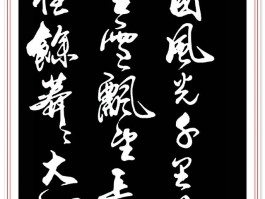 國風光千里
里雪飄望長
惟餘莽〻大